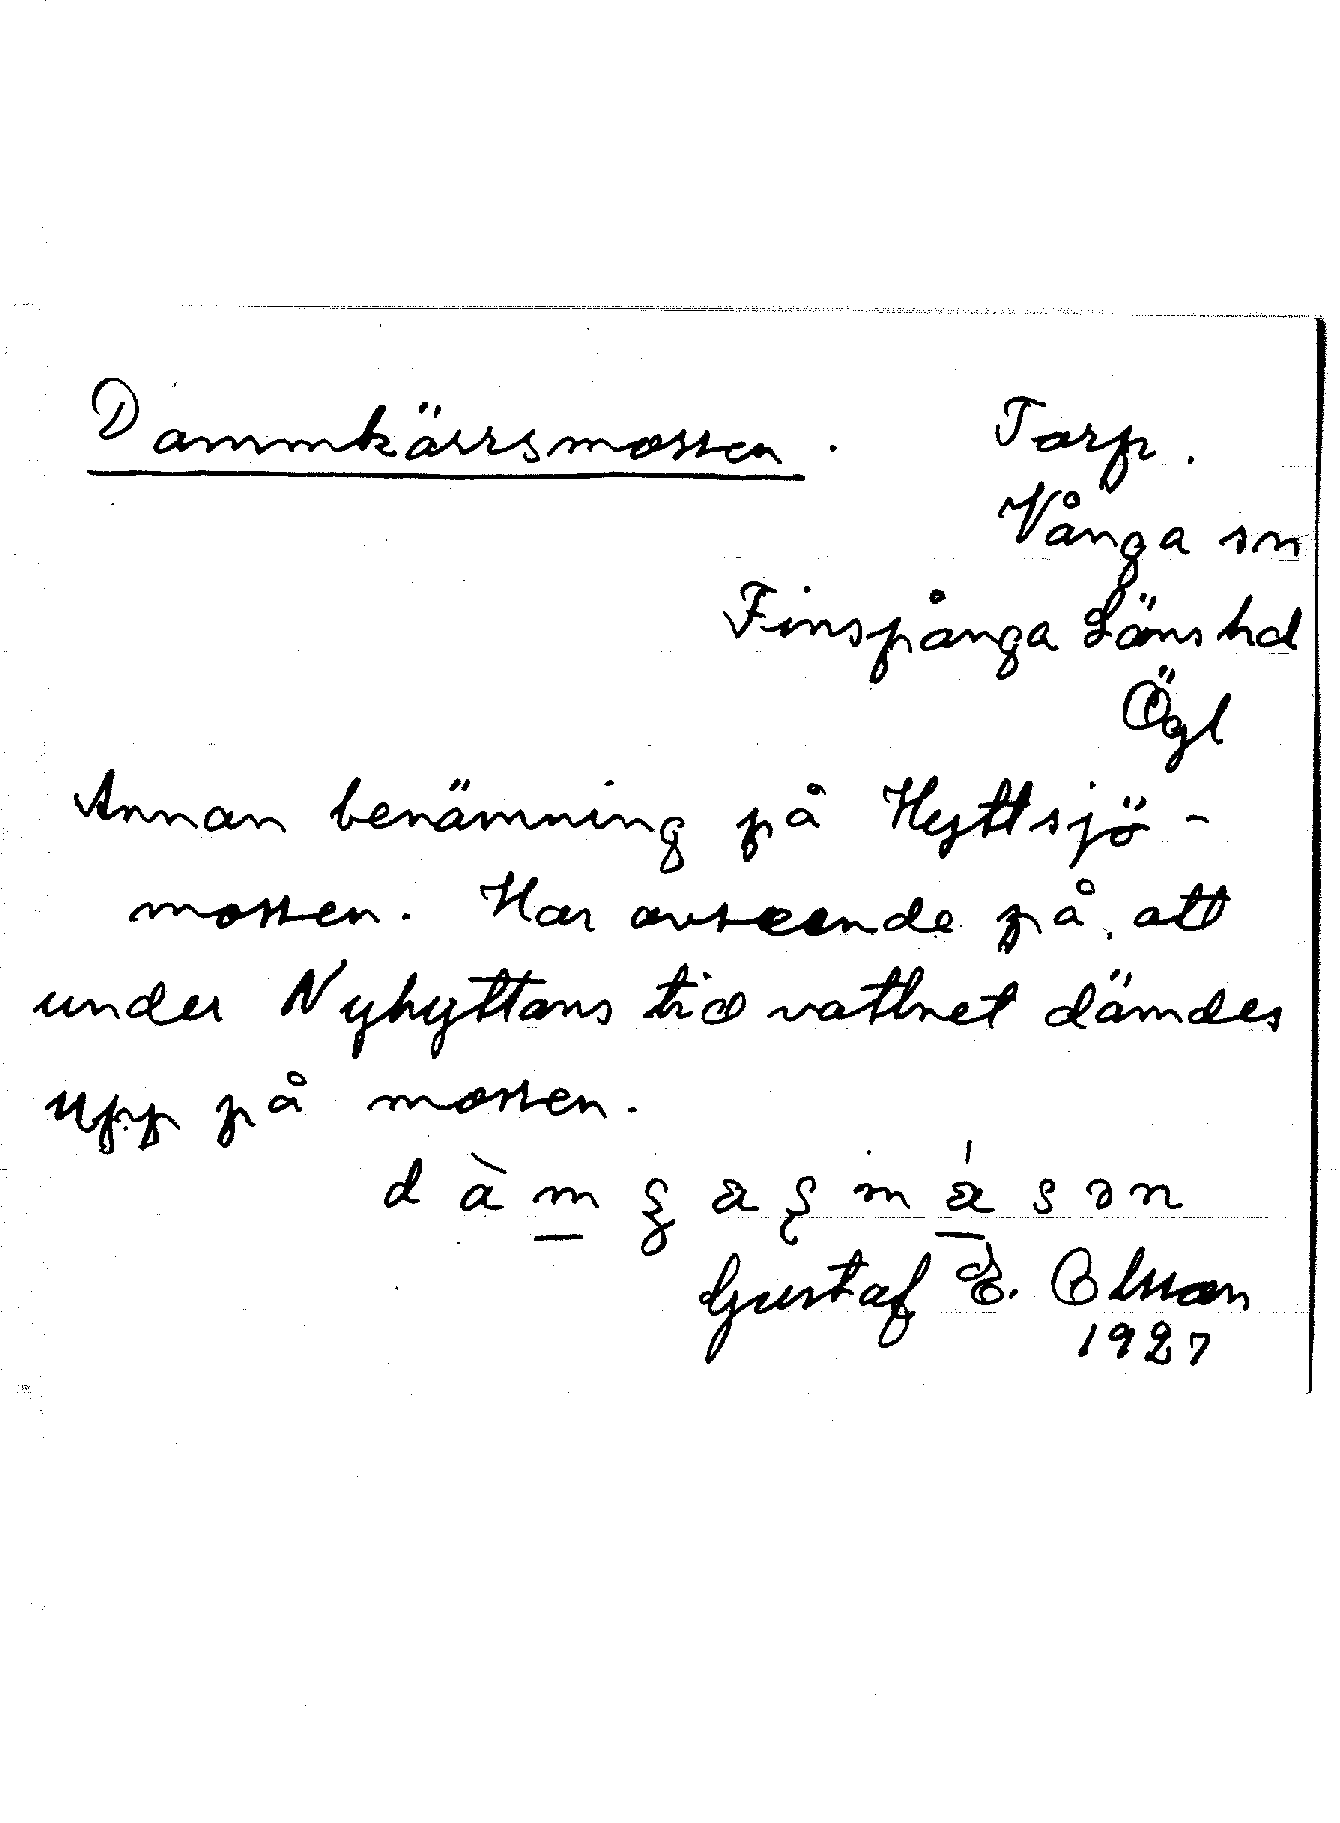 Dammkärrsmossen. Torp.
Vånga sn
Finspånga Läns hd
Ögl
Annan benämning på Hyttsjö-
mossen. Har avseende på, att
under Nyhyttans tid vattnet dämdes
upp på mossen.
Gustaf E.
1927